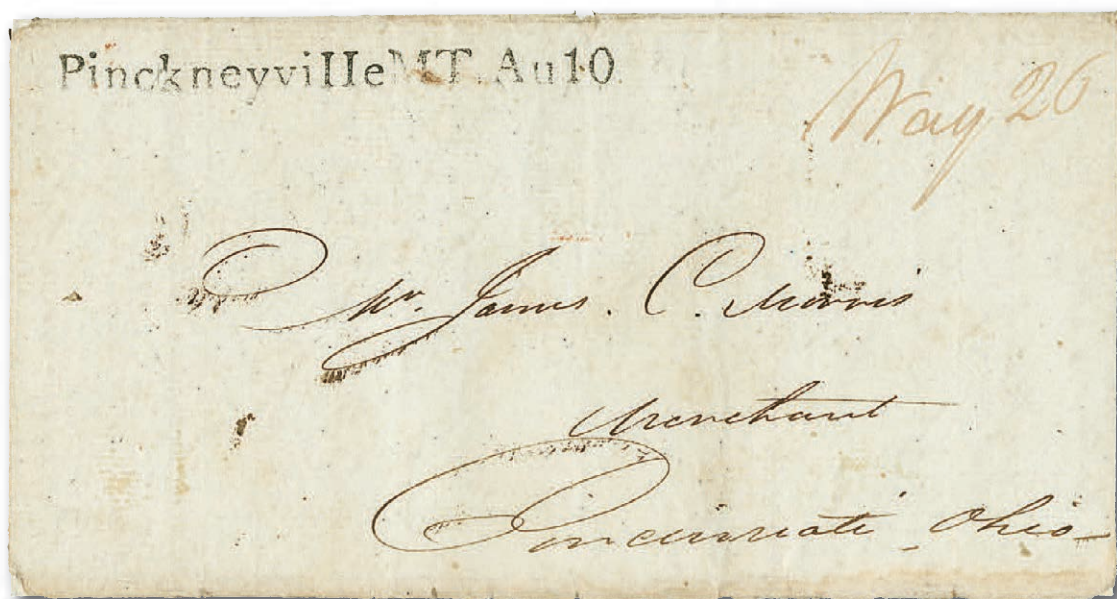 PinckneyvilleMT.Au10.
Way 26
Mr. James. C. Morris
Merchant
Cincinnati Ohio